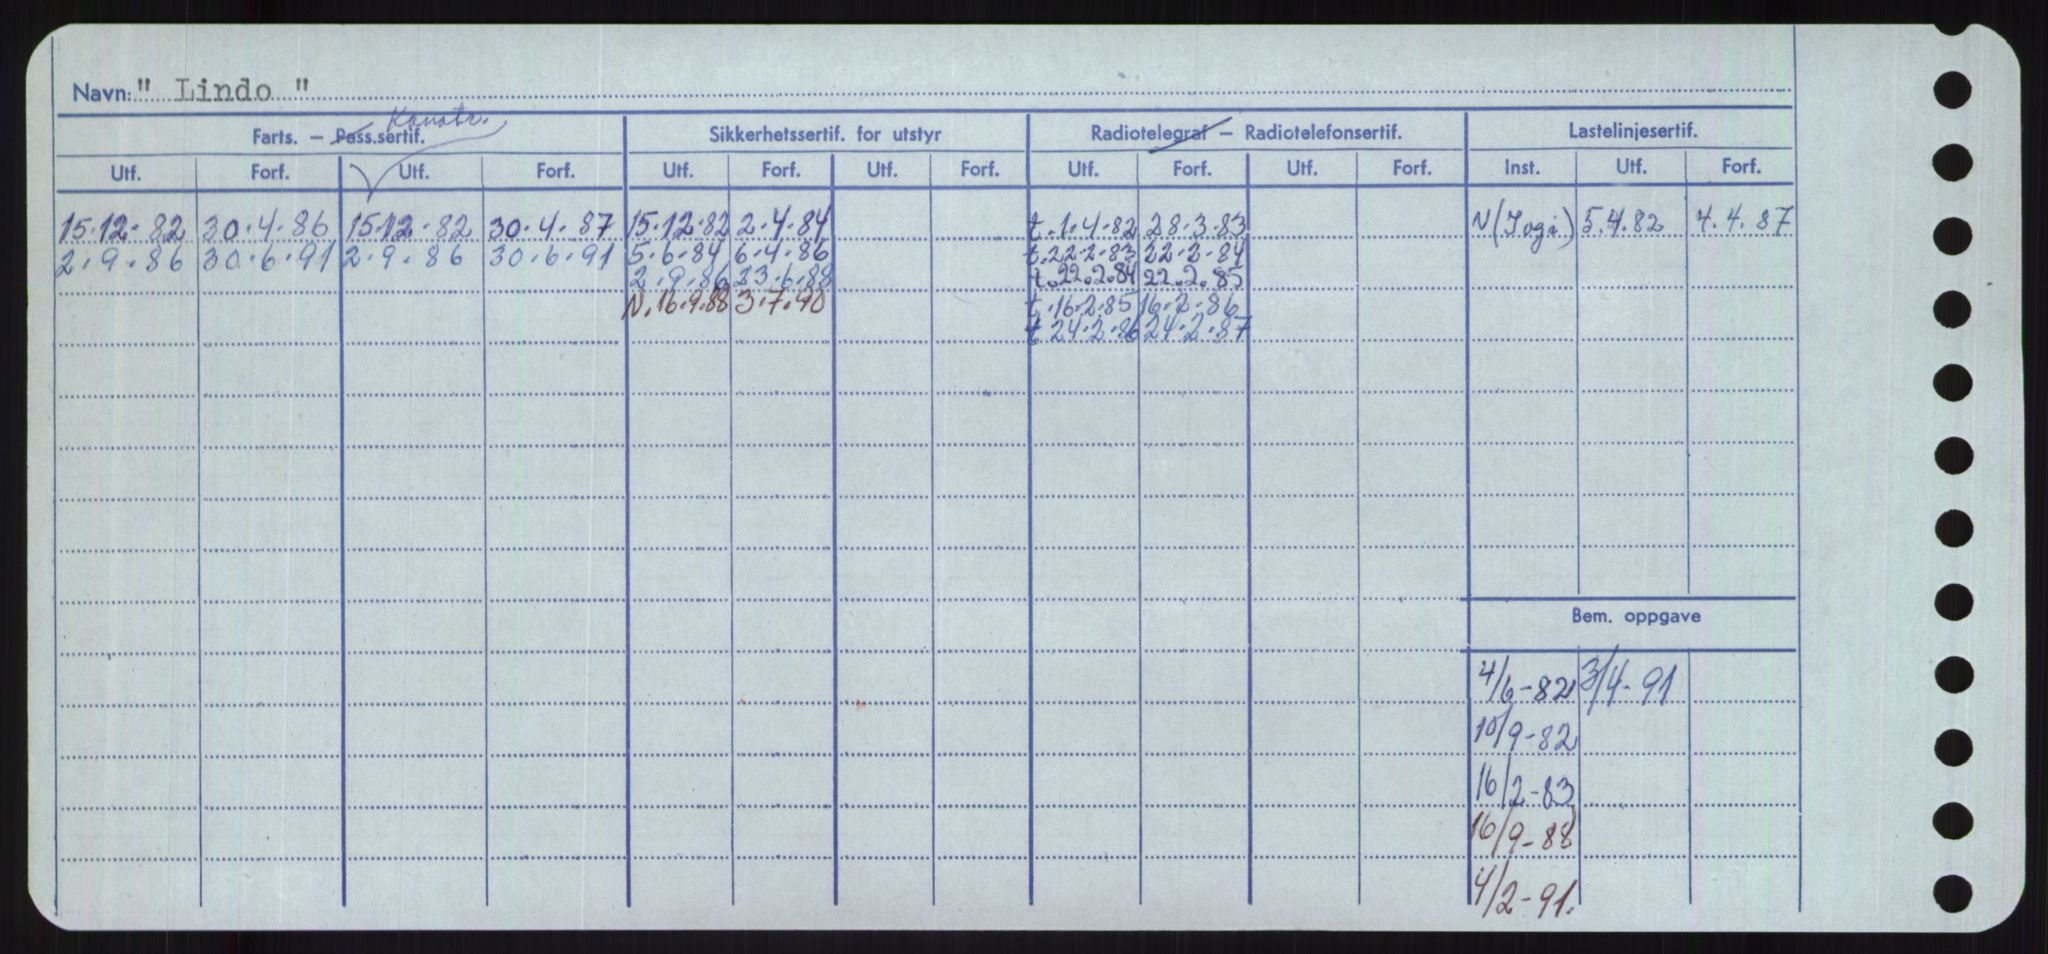 Navn: " Lindo "
Konstr.
Farts. — Pass.sertif. Sikkerhetssertif. for utstyr Radiotelegraf — Radiotelefonsertif. Lastelinjesertif.
Utf. Forf. Utf. Forf. Utf. Forf. Utf. Forf. Utf. Forf. Utf. Forf. Inst. Utf. Forf.
15.12.82 30.4.86 15.12.82 30.4.87 15.12.82 2.4.84 t.1.4.82 28.3.83 N(Iogi.) 5.4.82 4.4.87
2.9.86 30.6.91 2.9.86 30.6.91 5.6.84 6.4.86 t.22.2.83 22.2.84
2.9.86 23.6.88 t.22.2.84 22.2.85
N.16.9.88 3.7.90 t.16.2.85 16.2.86
t 24.2.86 24.2.87
Bem. oppgave
4/6-82 3/4-91
10/9-82
16/2-83
16/9-88
4/2-91.